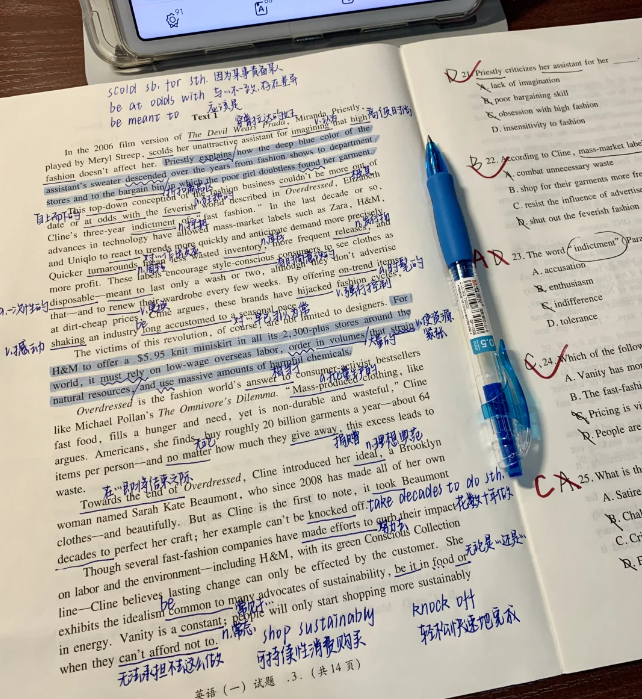 scold sb. for sth. 因为某事责备某人
be at odds with 与…不一致,存在差异
be meant to 应该是
Text 1
In the 2006 film version of The Devil Wears Prada, Miranda Priestly,
played by Meryl Streep, scolds her unattractive assistant for imagining that high
fashion doesn't affect her. Priestly explains how the deep blue color of the
assistant's sweater descended over the years from fashion shows to department
stores and to the bargain bin in which the poor girl doubtless found her garment.
This top-down conception of the fashion business couldn't be more out of
date or at odds with the feverish world described in Overdressed, Elizabeth
Cline's three-year indictment of "fast fashion." In the last decade or so,
advances in technology have allowed mass-market labels such as Zara, H&M,
and Uniqlo to react to trends more quickly and anticipate demand more precisely.
Quicker turnarounds mean less wasted inventory, more frequent releases, and
more profit. These labels encourage style-conscious consumers to see clothes as
disposable—meant to last only a wash or two, although they don't advertise
that—and to renew their wardrobe every few weeks. By offering on-trend items
at dirt-cheap prices, Cline argues, these brands have hijacked fashion cycles,
shaking an industry long accustomed to a seasonal pace.
The victims of this revolution, of course, are not limited to designers. For
H&M to offer a $5.95 knit miniskirt in all its 2,300-plus stores around the
world, it must rely on low-wage overseas labor, order in volumes that strain
natural resources, and use massive amounts of harmful chemicals.
Overdressed is the fashion world's answer to consumer-activist bestsellers
like Michael Pollan's The Omnivore's Dilemma. "Mass-produced clothing, like
fast food, fills a hunger and need, yet is non-durable and wasteful," Cline
argues. Americans, she finds, buy roughly 20 billion garments a year—about 64
items per person—and no matter how much they give away, this excess leads to
waste.
Towards the end of Overdressed, Cline introduced her ideal, a Brooklyn
woman named Sarah Kate Beaumont, who since 2008 has made all of her own
clothes—and beautifully. But as Cline is the first to note, it took Beaumont
decades to perfect her craft; her example can't be knocked off. take decades to do sth. 花数十年做
Though several fast-fashion companies have made efforts to curb their impact
on labor and the environment—including H&M, with its green Conscious Collection
line—Cline believes lasting change can only be effected by the customer. She
exhibits the idealism common to many advocates of sustainability, be it in food or
in energy. Vanity is a constant; people will only start shopping more sustainably
when they can't afford not to.
n.常态
shop sustainably
可持续性消费购买
knock off
轻松快速地完成
无法承担不去这么做
英语(一)试题 .3.(共14页)
D 21. Priestly criticizes her assistant for her
A. lack of imagination
B. poor bargaining skill
C. obsession with high fashion
D. insensitivity to fashion
D 22. According to Cline, mass-market labe
A. combat unnecessary waste
B. shop for their garments more fre
C. resist the influence of advertis
D. shut out the feverish fashion
A D 23. The word "indictment" (Par
A. accusation
B. enthusiasm
C. indifference
D. tolerance
C 24. Which of the follow
A. Vanity has mo
B. The fast-fash
C. Pricing is vi
D. People are
C A 25. What is the
A. Satire
B. Chal
C. Cri